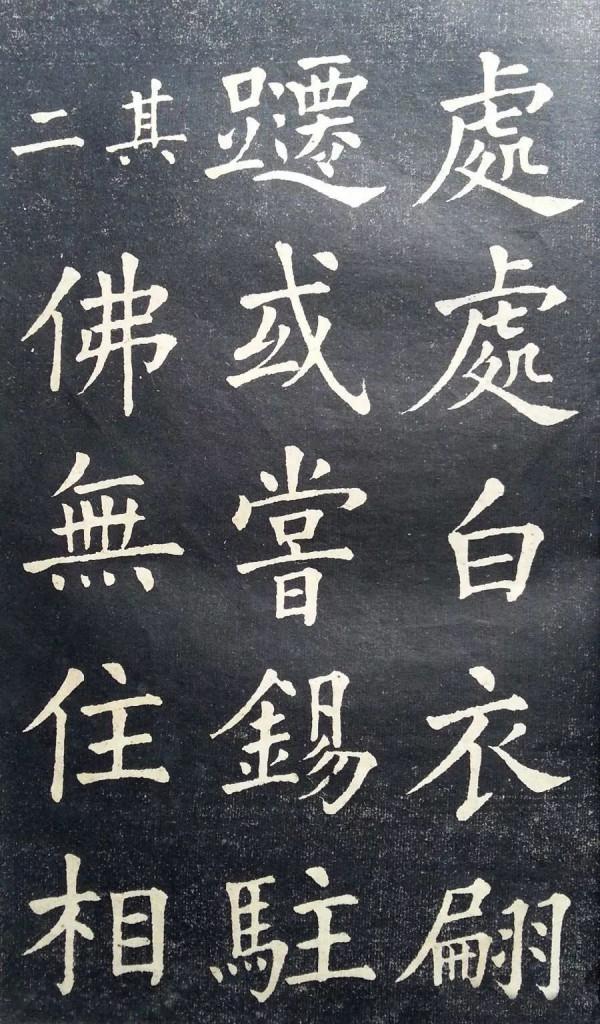 處處白衣翩
躚或嘗錫駐
其二佛無住相